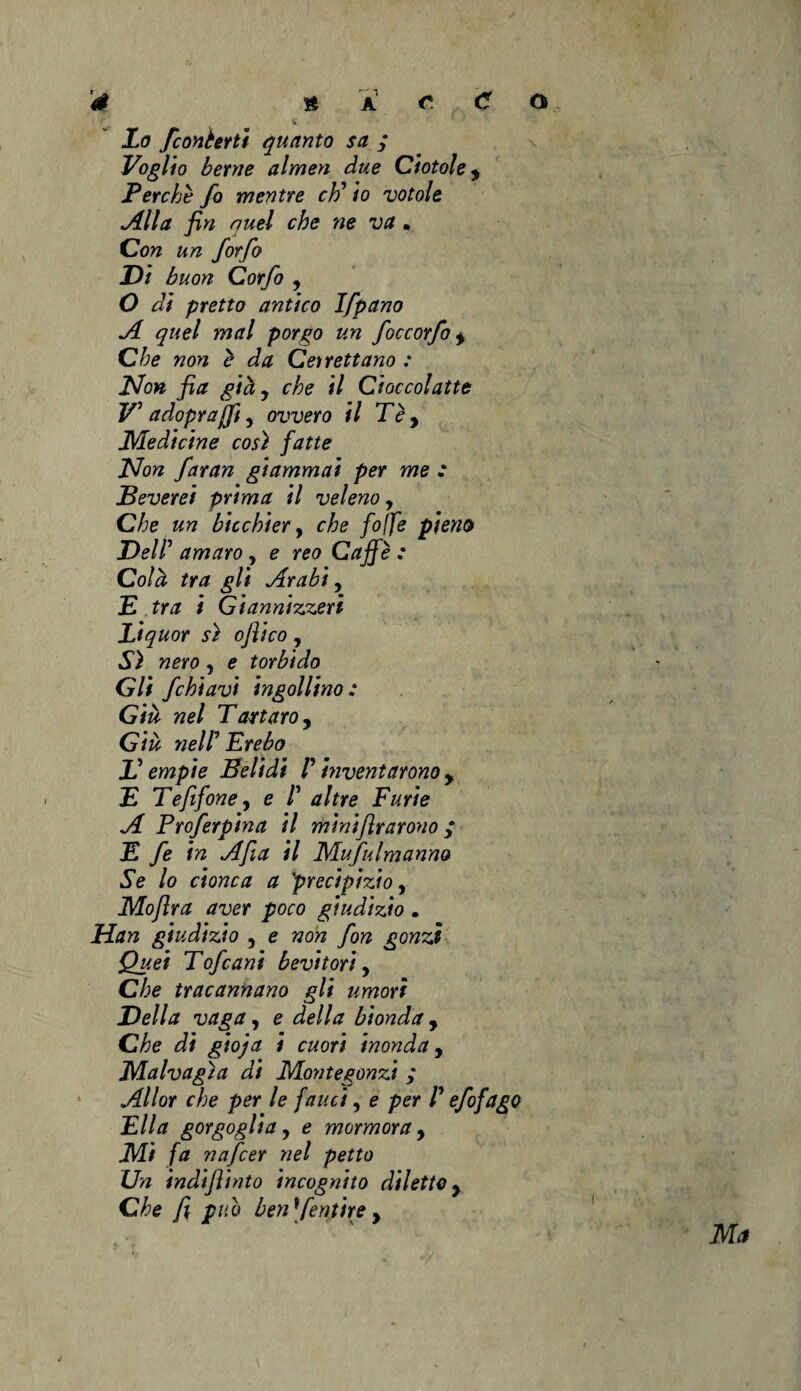 4 B A C C O
Lo ſconcerti quanto sa ;
Voglio berne almen due Ciotole,
Perchè ſo mentre ch' io votole
Alla fin quel che ne va .
Con un ſorſo
Di buon Corſo ,
O di pretto antico Iſpano
A quel mal porgo un ſoccorſo,
Che non è da Cerrettano :
Non fia già, che il Cioccolatte
V' adopraſſi, ovvero il Tè,
Medicine così fatte
Non ſaran giammai per me :
Beverei prima il veleno,
Che un bicchier, che foſſe pieno
Dell' amaro, e reo Caffè :
Colà tra gli Arabi,
E tra i Giannizzeri
Liquor sì oſtico,
Sì nero, e torbido
Gli ſchiavi ingollino :
Giù nel Tartaro,
Giù nell' Erebo
L' empie Belidi l' inventarono,
E Teſifone, e l' altre Furie
A Proſerpina il miniſtrarono ;
E ſe in Aſia il Muſulmanno
Se lo cionca a precipizio,
Moſtra aver poco giudizio .
Han giudizio , e non ſon gonzi
Quei Toſcani bevitori,
Che tracannano gli umori
Della vaga, e della bionda,
Che di gioja i cuori inonda,
Malvagìa di Montegonzi ;
Allor che per le fauci, e per l' eſofago
Ella gorgoglia, e mormora,
Mi fa naſcer nel petto
Un indiſtinto incognito diletto,
Che ſi può ben ſentire,
Ma